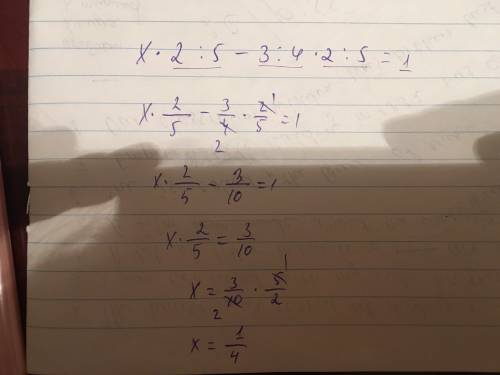 x · 2 : 5 − 3 : 4 · 2 : 5 = 1
x · 2/5 − 3/4 · 2/5 = 1
2 1
x · 2/5 − 3/10 = 1
x · 2/5 = 3/10
x = 3/10 · 5/2
2 1
x = 1/4